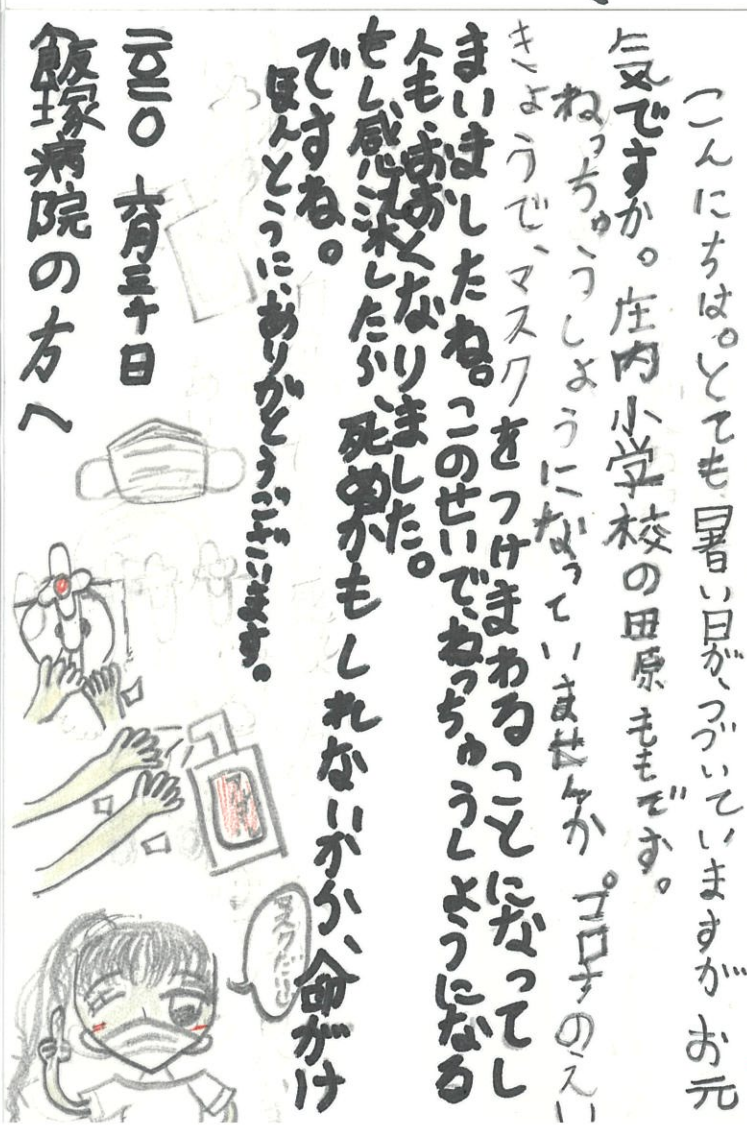 こんにちは。とても暑い日が、つづいていますがお元
気ですか。庄内小学校の田原ももです。
ねっちゅうしょうになっていませんか。コロナのえい
きょうで、マスクをつけまわることになってし
まいましたね。このせいで、ねっちゅうしょうになる
人も、おおくなりました。
もし感染したら、死ぬかもしれないがら、命がけ
ですね。
ほんとうに、ありがとうございます。
二〇二〇 六月三十日
飯塚病院の方へ